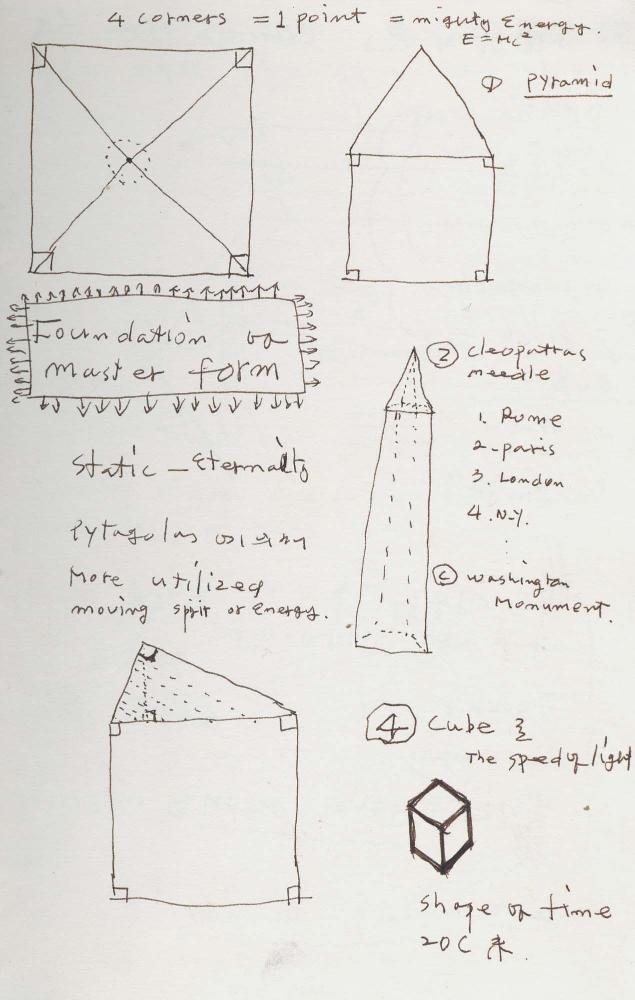 4 corners = 1 point = mighty Energy.
E = Mc²
① Pyramid
Foundation
master form
② cleopattas
needle
1. Rome
2. paris
3. London
4. N.Y.
Static - Eternality
Pytagolas
More utilized
moving spirit or Energy.
ⓒ washington
Monument.
④ Cube
The speed of light
shape of time
20C